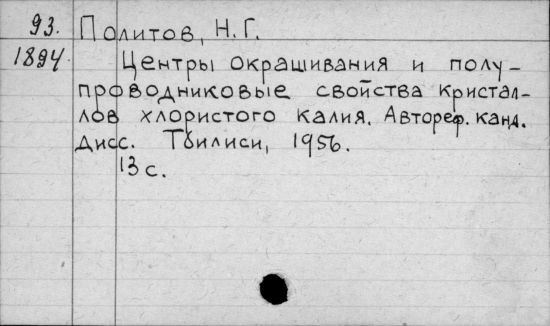 93. Политов, Н.Г.
1894 Центры окрашивания и полу-
проводниковые свойства кристал-
лов хлористого калия. Автореф. канд.
дисс. Тбилиси, 1956.
13 с.